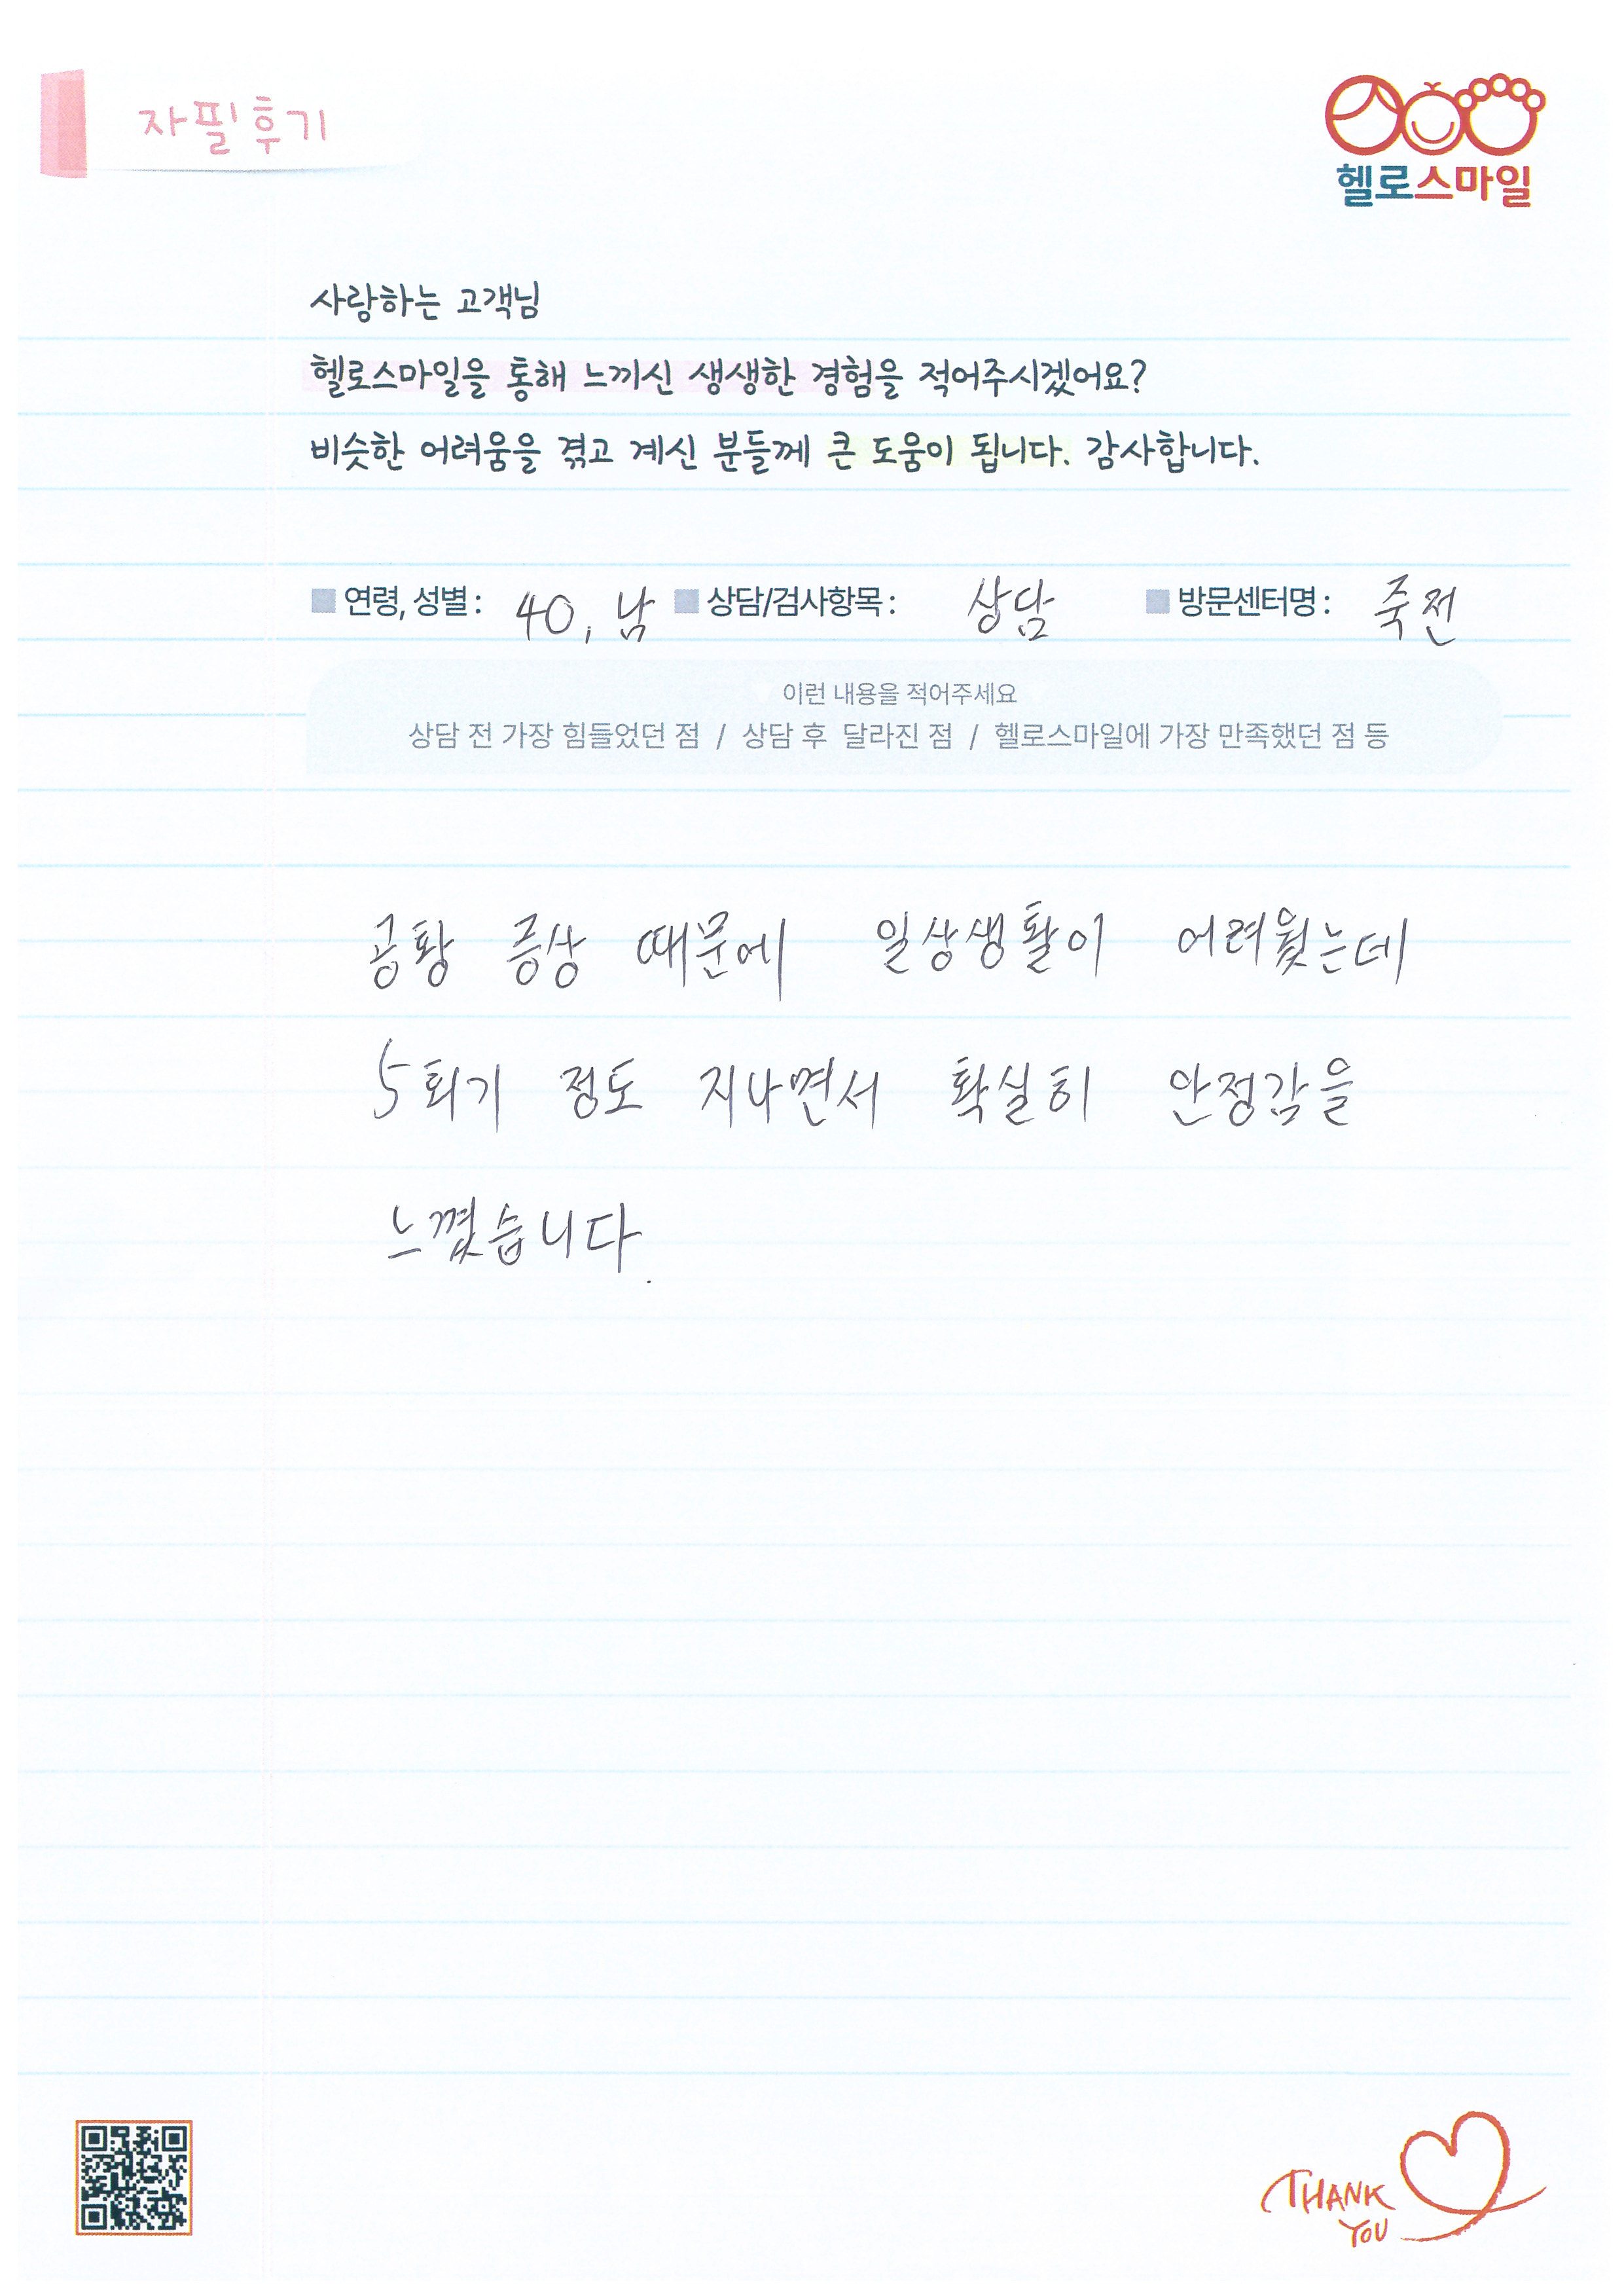 자필후기
헬로스마일
사랑하는 고객님
헬로스마일을 통해 느끼신 생생한 경험을 적어주시겠어요?
비슷한 어려움을 겪고 계신 분들께 큰 도움이 됩니다. 감사합니다.
연령, 성별 : 40, 남 상담/검사항목 : 상담 방문센터명 : 죽전
이런 내용을 적어주세요
상담 전 가장 힘들었던 점 / 상담 후 달라진 점 / 헬로스마일에 가장 만족했던 점 등
공황 증상 때문에 일상생활이 어려웠는데
5회기 정도 지나면서 확실히 안정감을
느꼈습니다.
THANK
YOU